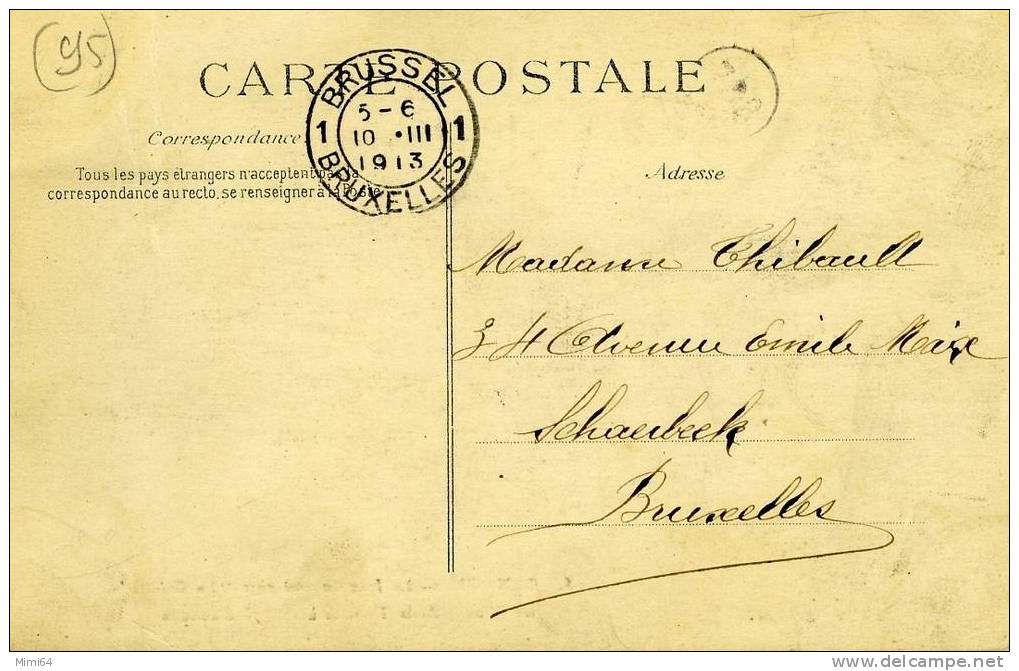 (95)
CARTE POSTALE
BRUSSEL
5-6
1 10 • III 1
1913
BRUXELLES
Correspondance
Tous les pays étrangers n'acceptent pas la
correspondance au recto, se renseigner à la Poste
Adresse
Madame Thibault
34 Avenue Emile Max
Schaerbeek
Bruxelles
Mimi64
www.delcampe.net